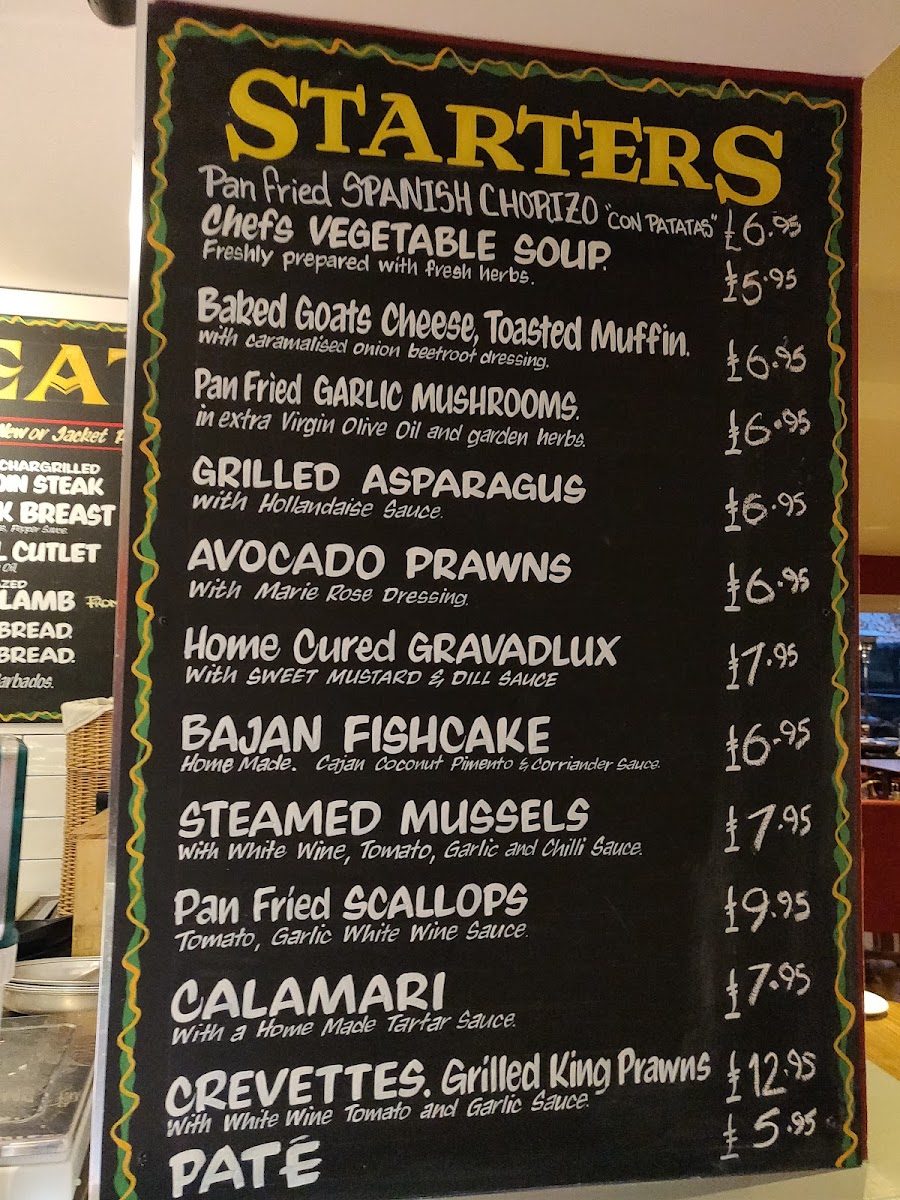 STARTERS
Pan fried SPANISH CHORIZO "CON PATATAS" £6.95
Chefs VEGETABLE SOUP. £5.95
Freshly prepared with fresh herbs.
Baked Goats Cheese, Toasted Muffin. £6.95
with caramalised onion beetroot dressing.
Pan Fried GARLIC MUSHROOMS. £6.95
in extra Virgin Olive Oil and garden herbs.
GRILLED ASPARAGUS £6.95
with Hollandaise Sauce.
AVOCADO PRAWNS £6.95
With Marie Rose Dressing.
Home Cured GRAVADLUX £7.95
With SWEET MUSTARD & DILL SAUCE
BAJAN FISHCAKE £6.95
Home Made. Cajan Coconut Pimento & Corriander Sauce.
STEAMED MUSSELS £7.95
With White Wine, Tomato, Garlic and Chilli Sauce.
Pan Fried SCALLOPS £9.95
Tomato, Garlic White Wine Sauce.
CALAMARI £7.95
With a Home Made Tartar Sauce.
CREVETTES. Grilled King Prawns £12.95
With White Wine Tomato and Garlic Sauce.
PATÉ £5.95
New or Jacket
CHARGRILLED
STEAK
BREAST
Pepper Sauce.
CUTLET
Oil
LAMB FROM
BREAD.
BREAD.